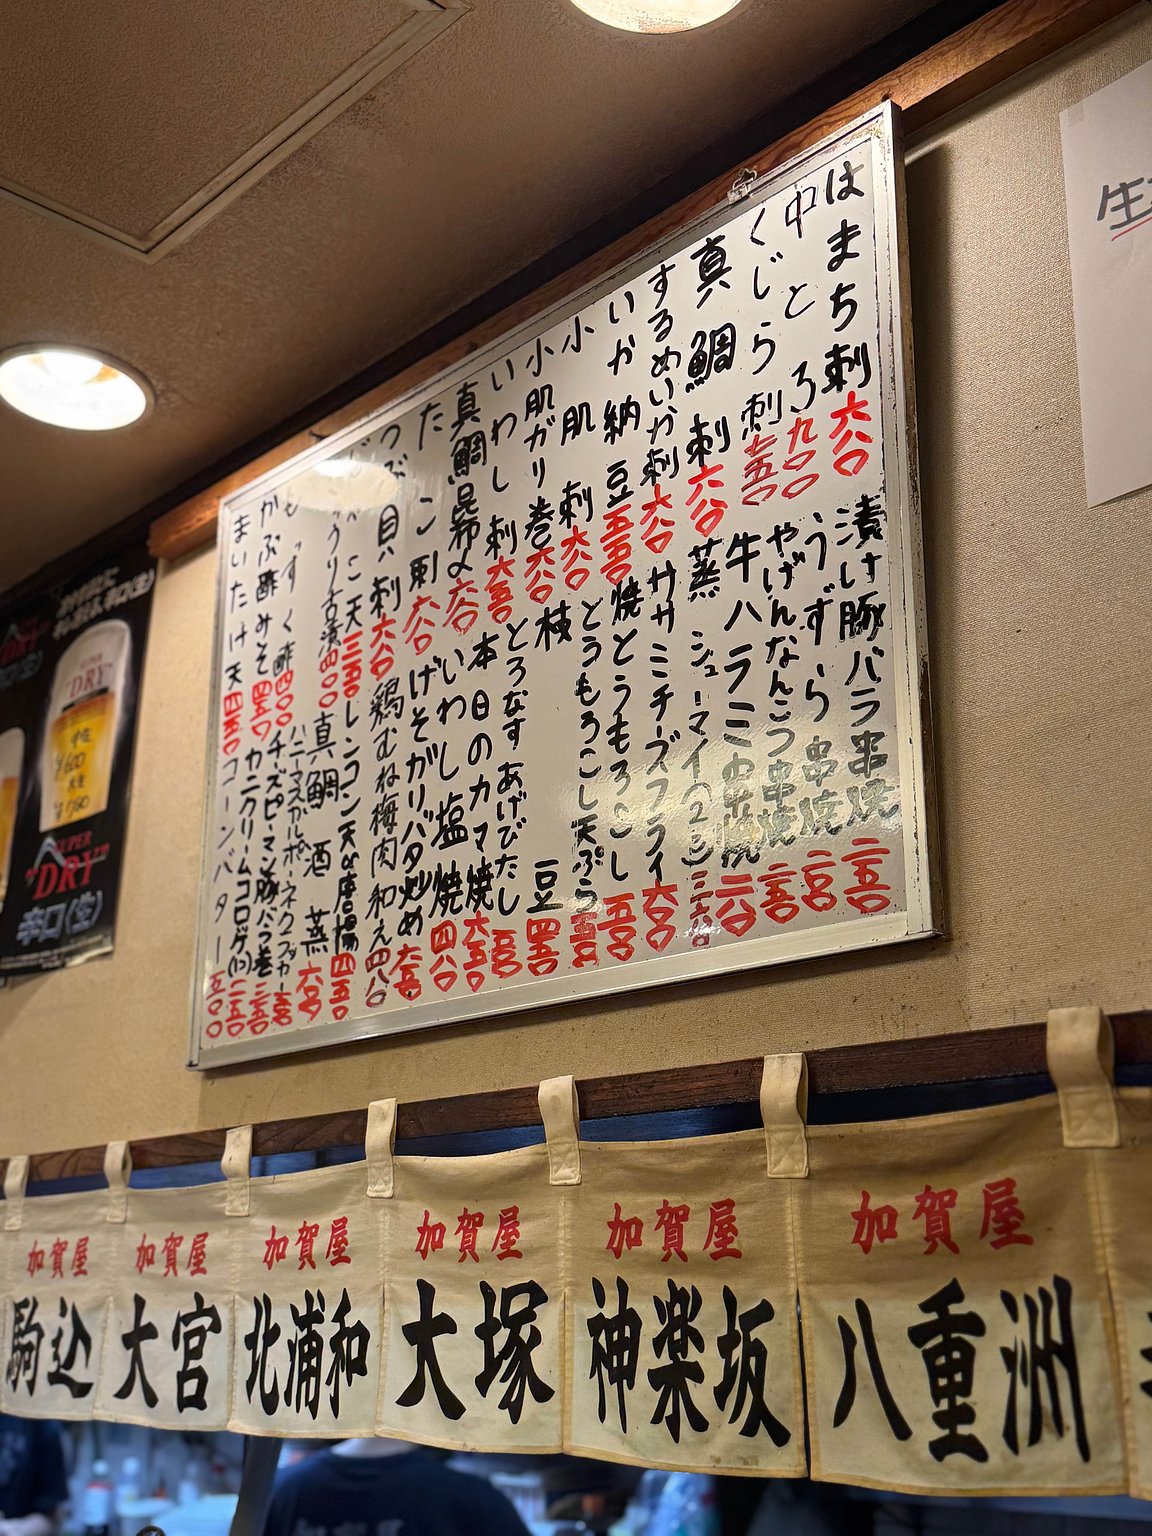 はまち刺 六八〇
中とろ 九〇〇
くじら刺 七五〇
真鯛刺 六八〇
するめいか刺 六八〇
いか納豆 五五〇
小肌刺 六八〇
小肌ガリ巻 六八〇
いわし刺 六五〇
真鯛昆布〆 六八〇
たこ刺 六八〇
つぶ貝刺 六八〇
こ天 三五〇
うり古漬 四〇〇
もずく酢 四〇〇
かぶ酢みそ 四五〇
まいたけ天 四五〇
漬け豚バラ串焼 二五〇
うずら串焼 二〇〇
やげんなんこつ串焼 二五〇
牛ハラミ串焼 二八〇
蒸シューマイ(2コ) 二六〇
ササミチーズフライ 六八〇
焼とうもろこし 五五〇
とうもろこし天ぷら 五五〇
枝豆 四五〇
とろなすあげびたし 五五〇
本日のカマ焼 六五〇
いわし塩焼 四八〇
げそガリバタ炒め 六五〇
鶏むね梅肉和え 四八〇
レンコン天or唐揚 四五〇
真鯛酒蒸 六八〇
チーズピーマン豚バラ巻 三五〇
カニクリームコロッケ(1コ) 二五〇
コーンバター 五〇〇
生
SUPER
"DRY"
中生
¥600
大生
SUPER
"DRY"
辛口〈生〉
加賀屋
駒込
加賀屋
大宮
加賀屋
北浦和
加賀屋
大塚
加賀屋
神楽坂
加賀屋
八重洲